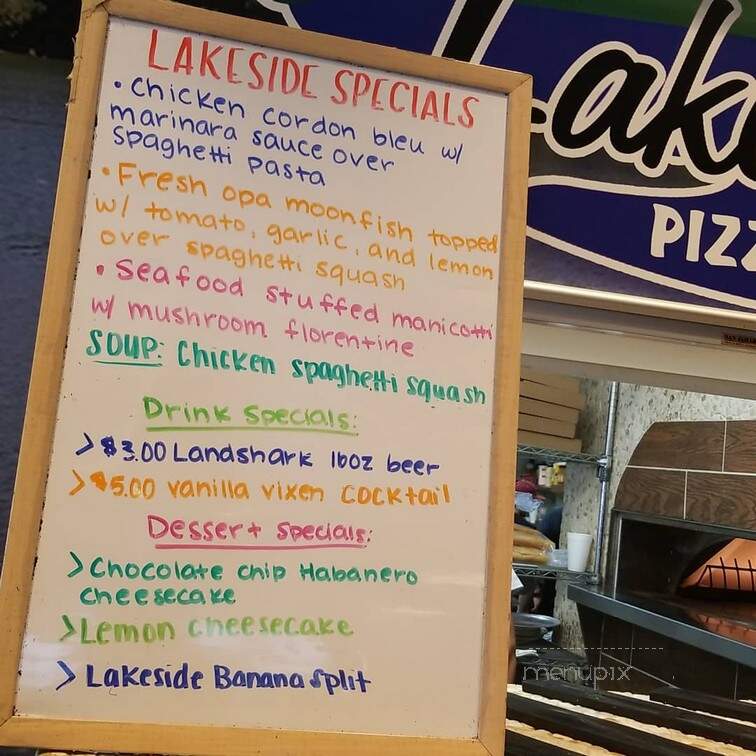 LAKESIDE SPECIALS
• Chicken cordon bleu w/
marinara sauce over
spaghetti pasta
• Fresh opa moonfish topped
w/ tomato, garlic, and lemon
over spaghetti squash
• Seafood stuffed manicotti
w/ mushroom florentine
SOUP: Chicken spaghetti squash
Drink Specials:
> $3.00 Landshark 16oz beer
> $5.00 vanilla vixen cocktail
Dessert Specials:
> Chocolate chip Habanero
cheesecake
> Lemon cheesecake
> Lakeside Banana Split
Lake
PIZZ
menupix